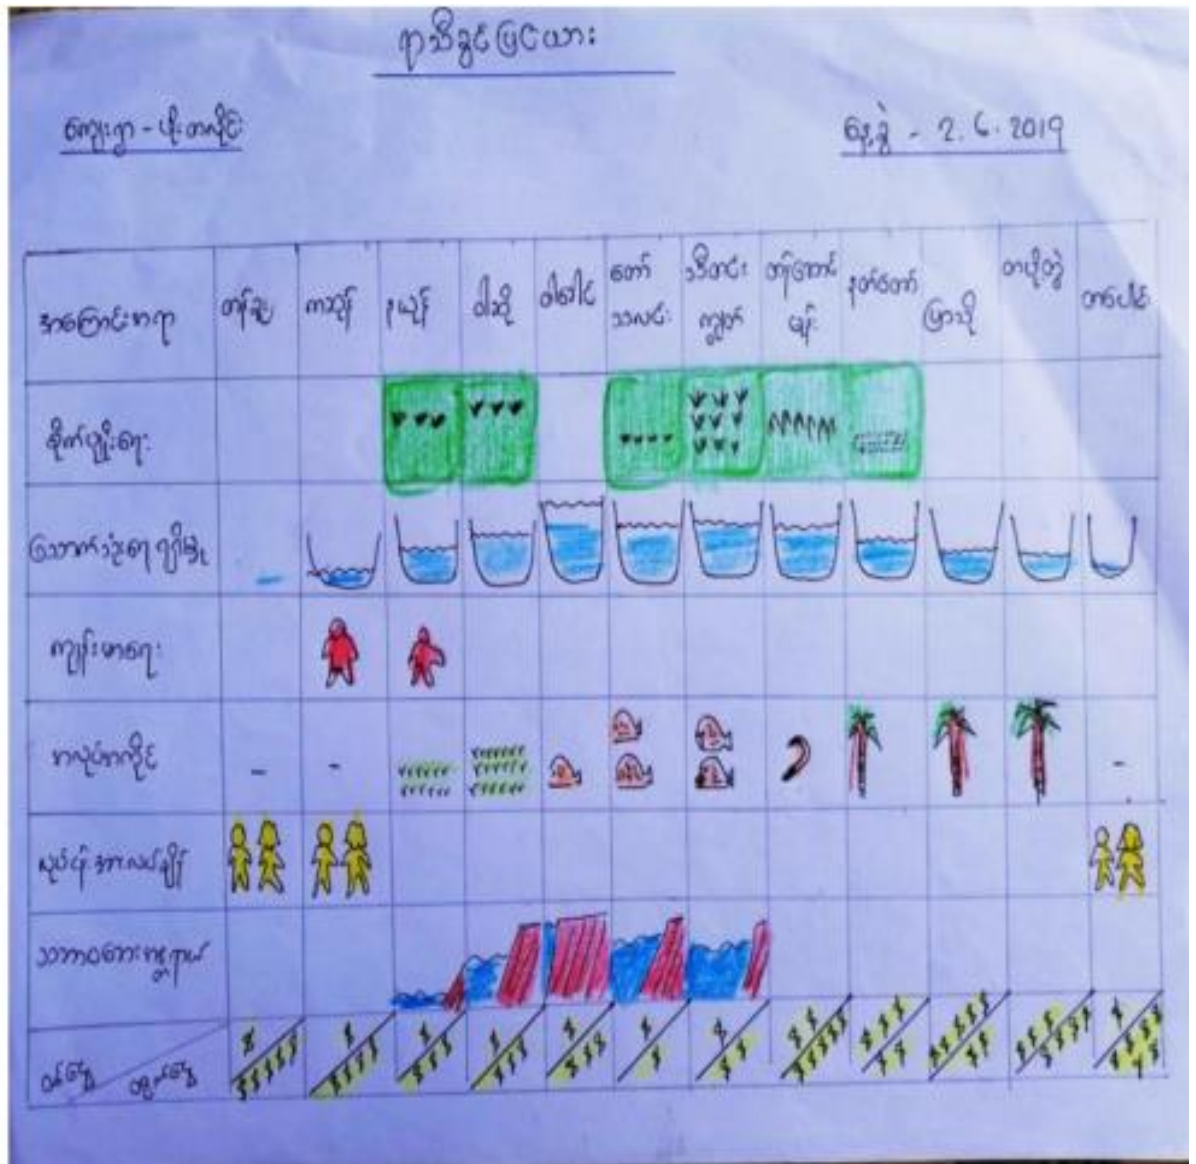 ရာသီခွင်ပြင်ယား
ကျေးရွာ - ဖိုးတလိုင်း
နေ့စွဲ - 2.6.2019
အကြောင်းအရာ
တန်ခူး
ကဆုန်
နယုန်
ဝါဆို
ဝါခေါင်
တော်
သလင်း
သီတင်း
ကျွတ်
တန်ဆောင်
မုန်း
နတ်တော်
ပြာသို
တပို့တွဲ
တပေါင်း
စိုက်ပျိုးရေး
သောက်သုံးရေ ရရှိမှု
ကျန်းမာရေး
အလုပ်အကိုင်
လုပ်ငန်းအားလပ်ချိန်
သဘာဝဘေးအန္တရာယ်
ဝင်ငွေ
ထွက်ငွေ